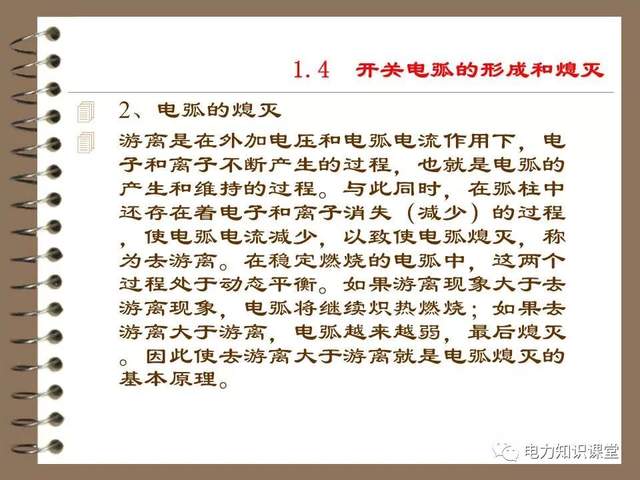 1.4 开关电弧的形成和熄灭
2、电弧的熄灭
游离是在外加电压和电弧电流作用下，电
子和离子不断产生的过程，也就是电弧的
产生和维持的过程。与此同时，在弧柱中
还存在着电子和离子消失（减少）的过程
，使电弧电流减少，以致使电弧熄灭，称
为去游离。在稳定燃烧的电弧中，这两个
过程处于动态平衡。如果游离现象大于去
游离现象，电弧将继续炽热燃烧；如果去
游离大于游离，电弧越来越弱，最后熄灭
。因此使去游离大于游离就是电弧熄灭的
基本原理。
电力知识课堂